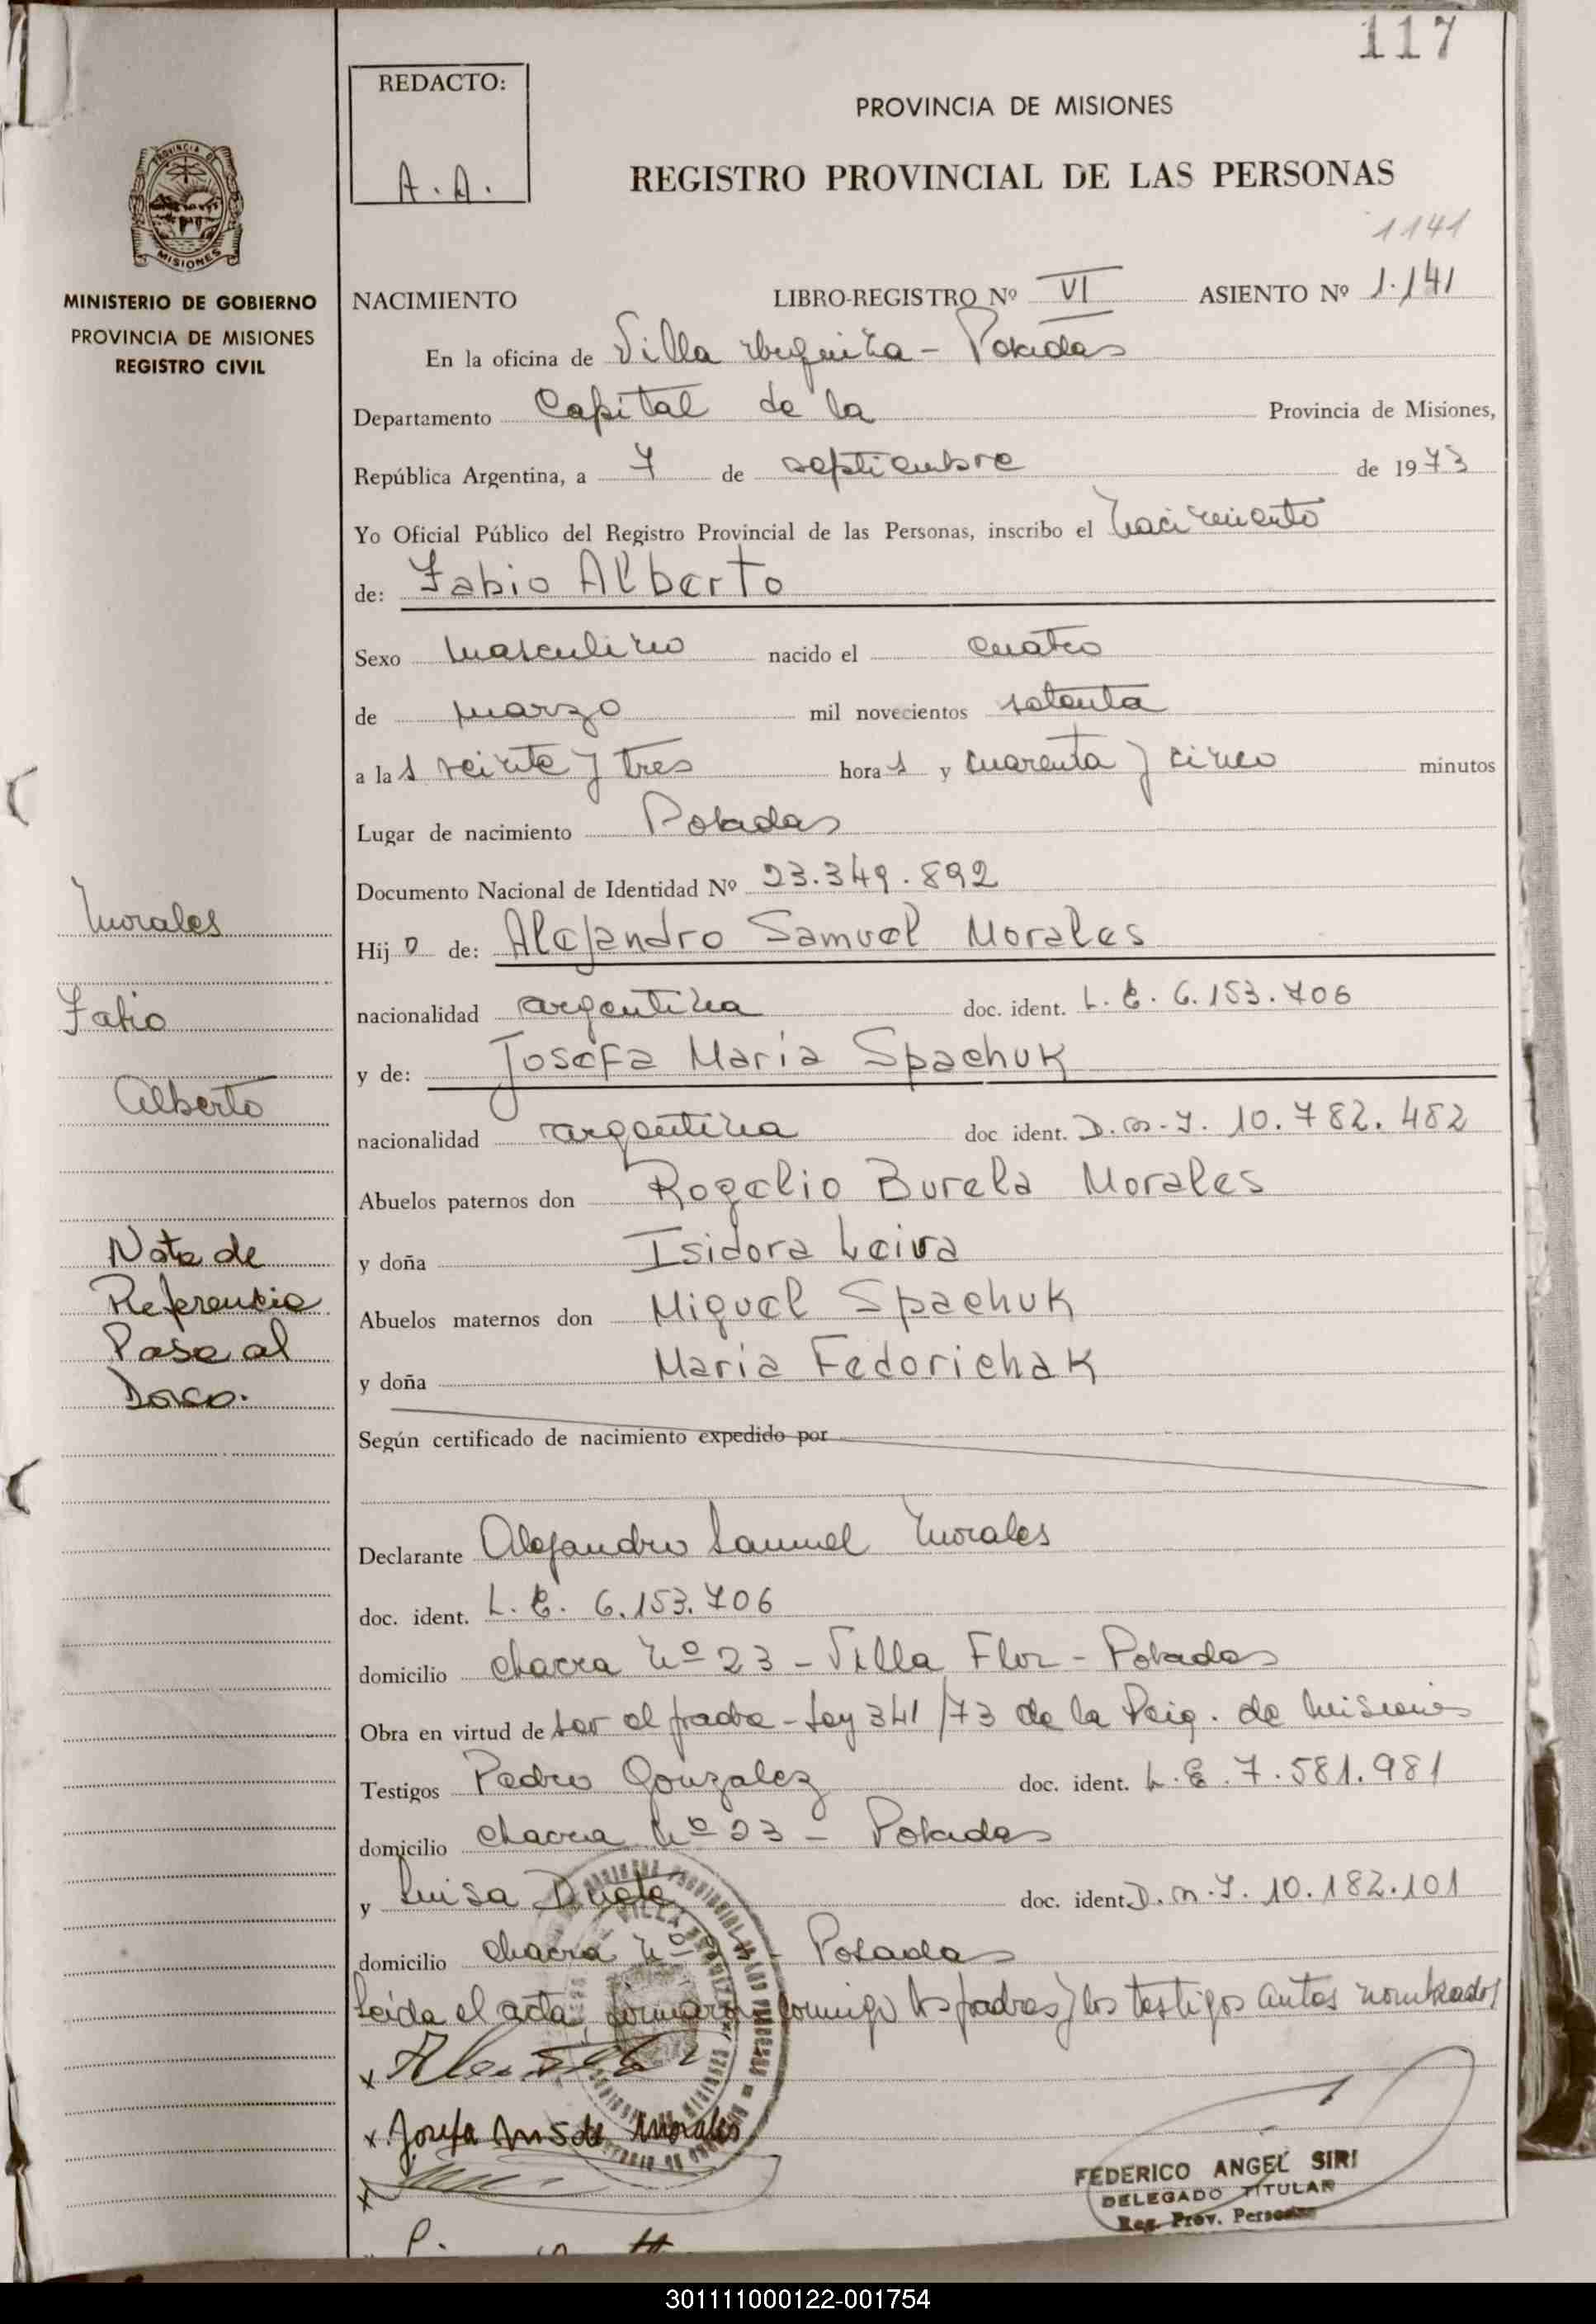 117
REDACTO:
A. A.
PROVINCIA DE MISIONES
REGISTRO PROVINCIAL DE LAS PERSONAS
1141
PROVINCIA DE
MISIONES
MINISTERIO DE GOBIERNO
PROVINCIA DE MISIONES
REGISTRO CIVIL
NACIMIENTO LIBRO-REGISTRO Nº VI ASIENTO Nº 1.141
En la oficina de Villa Urquiza - Posadas
Departamento Capital de la Provincia de Misiones,
República Argentina, a 7 de septiembre de 1973
Yo Oficial Público del Registro Provincial de las Personas, inscribo el Nacimiento
de: Fabio Alberto
Sexo masculino nacido el cuatro
de marzo mil novecientos setenta
a las veinte y tres horas y cuarenta y cinco minutos
Lugar de nacimiento Posadas
Documento Nacional de Identidad Nº 23.349.892
Hijo de: Alejandro Samuel Morales
nacionalidad argentina doc. ident. L. E. 6.153.706
y de: Josefa María Spachuk
nacionalidad argentina doc ident. D. N. I. 10.782.482
Abuelos paternos don Rogelio Burela Morales
y doña Isidora Leiva
Abuelos maternos don Miguel Spachuk
y doña María Fedorichak
Según certificado de nacimiento expedido por
Declarante Alejandro Samuel Morales
doc. ident. L. E. 6.153.706
domicilio chacra Nº 23 - Villa Flor - Posadas
Obra en virtud de ser el padre - Ley 341/73 de la Pcia. de Misiones
Testigos Pedro Gonzalez doc. ident. L. E. 7.581.981
domicilio chacra Nº 23 - Posadas
y Luisa doc. ident. D. N. I. 10.182.101
domicilio chacra Nº - Posadas
Leida el acta, firmaron conmigo los padres y los testigos antes nombrados
x
x Josefa M S de Morales
x
Morales
Fabio
Alberto
Nota de
Referencia
Pase al
Dorso.
FEDERICO ANGEL SIRI
DELEGADO TITULAR
Reg. Prov. Personas
301111000122-001754